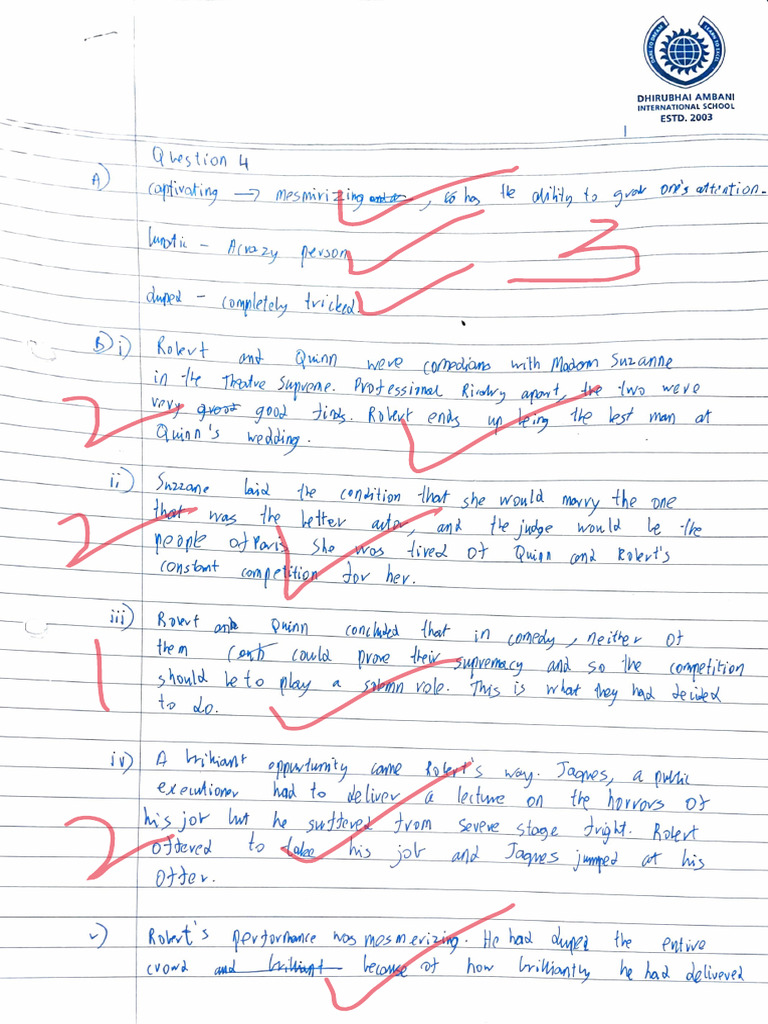 DARE TO DREAM LEARN TO EXCEL
DHIRUBHAI AMBANI
INTERNATIONAL SCHOOL
ESTD. 2003
1
Question 4
A) captivating → mesmirizing, has the ability to grab one's attention.
lunatic - A crazy person
duped - completely tricked.
3
B) i) Robert and Quinn were comedians with Madam Suzanne
in the Theatre Supreme. Professional Rivalry apart, the two were
very good good finds. Robert ends up being the best man at
Quinn's wedding.
2
ii) Suzzane laid the condition that she would marry the one
that was the better actor, and the judge would be the
people of Paris she was tired of Quinn and Robert's
constant competition for her.
2
iii) Robert and Quinn concluded that in comedy, neither of
them could prove their supremacy and so the competition
should be to play a solemn role. This is what they had decided
to do.
1
iv) A brilliant oppurtunity came Robert's way. Jaques, a public
executioner had to deliver a lecture on the horrors of
his job but he suffered from severe stage fright. Robert
offered to take his job and Jaques jumped at his
offer.
2
v) Robert's performance was mesmerizing. He had duped the entire
crowd and brilliant because of how brilliantly he had delivered